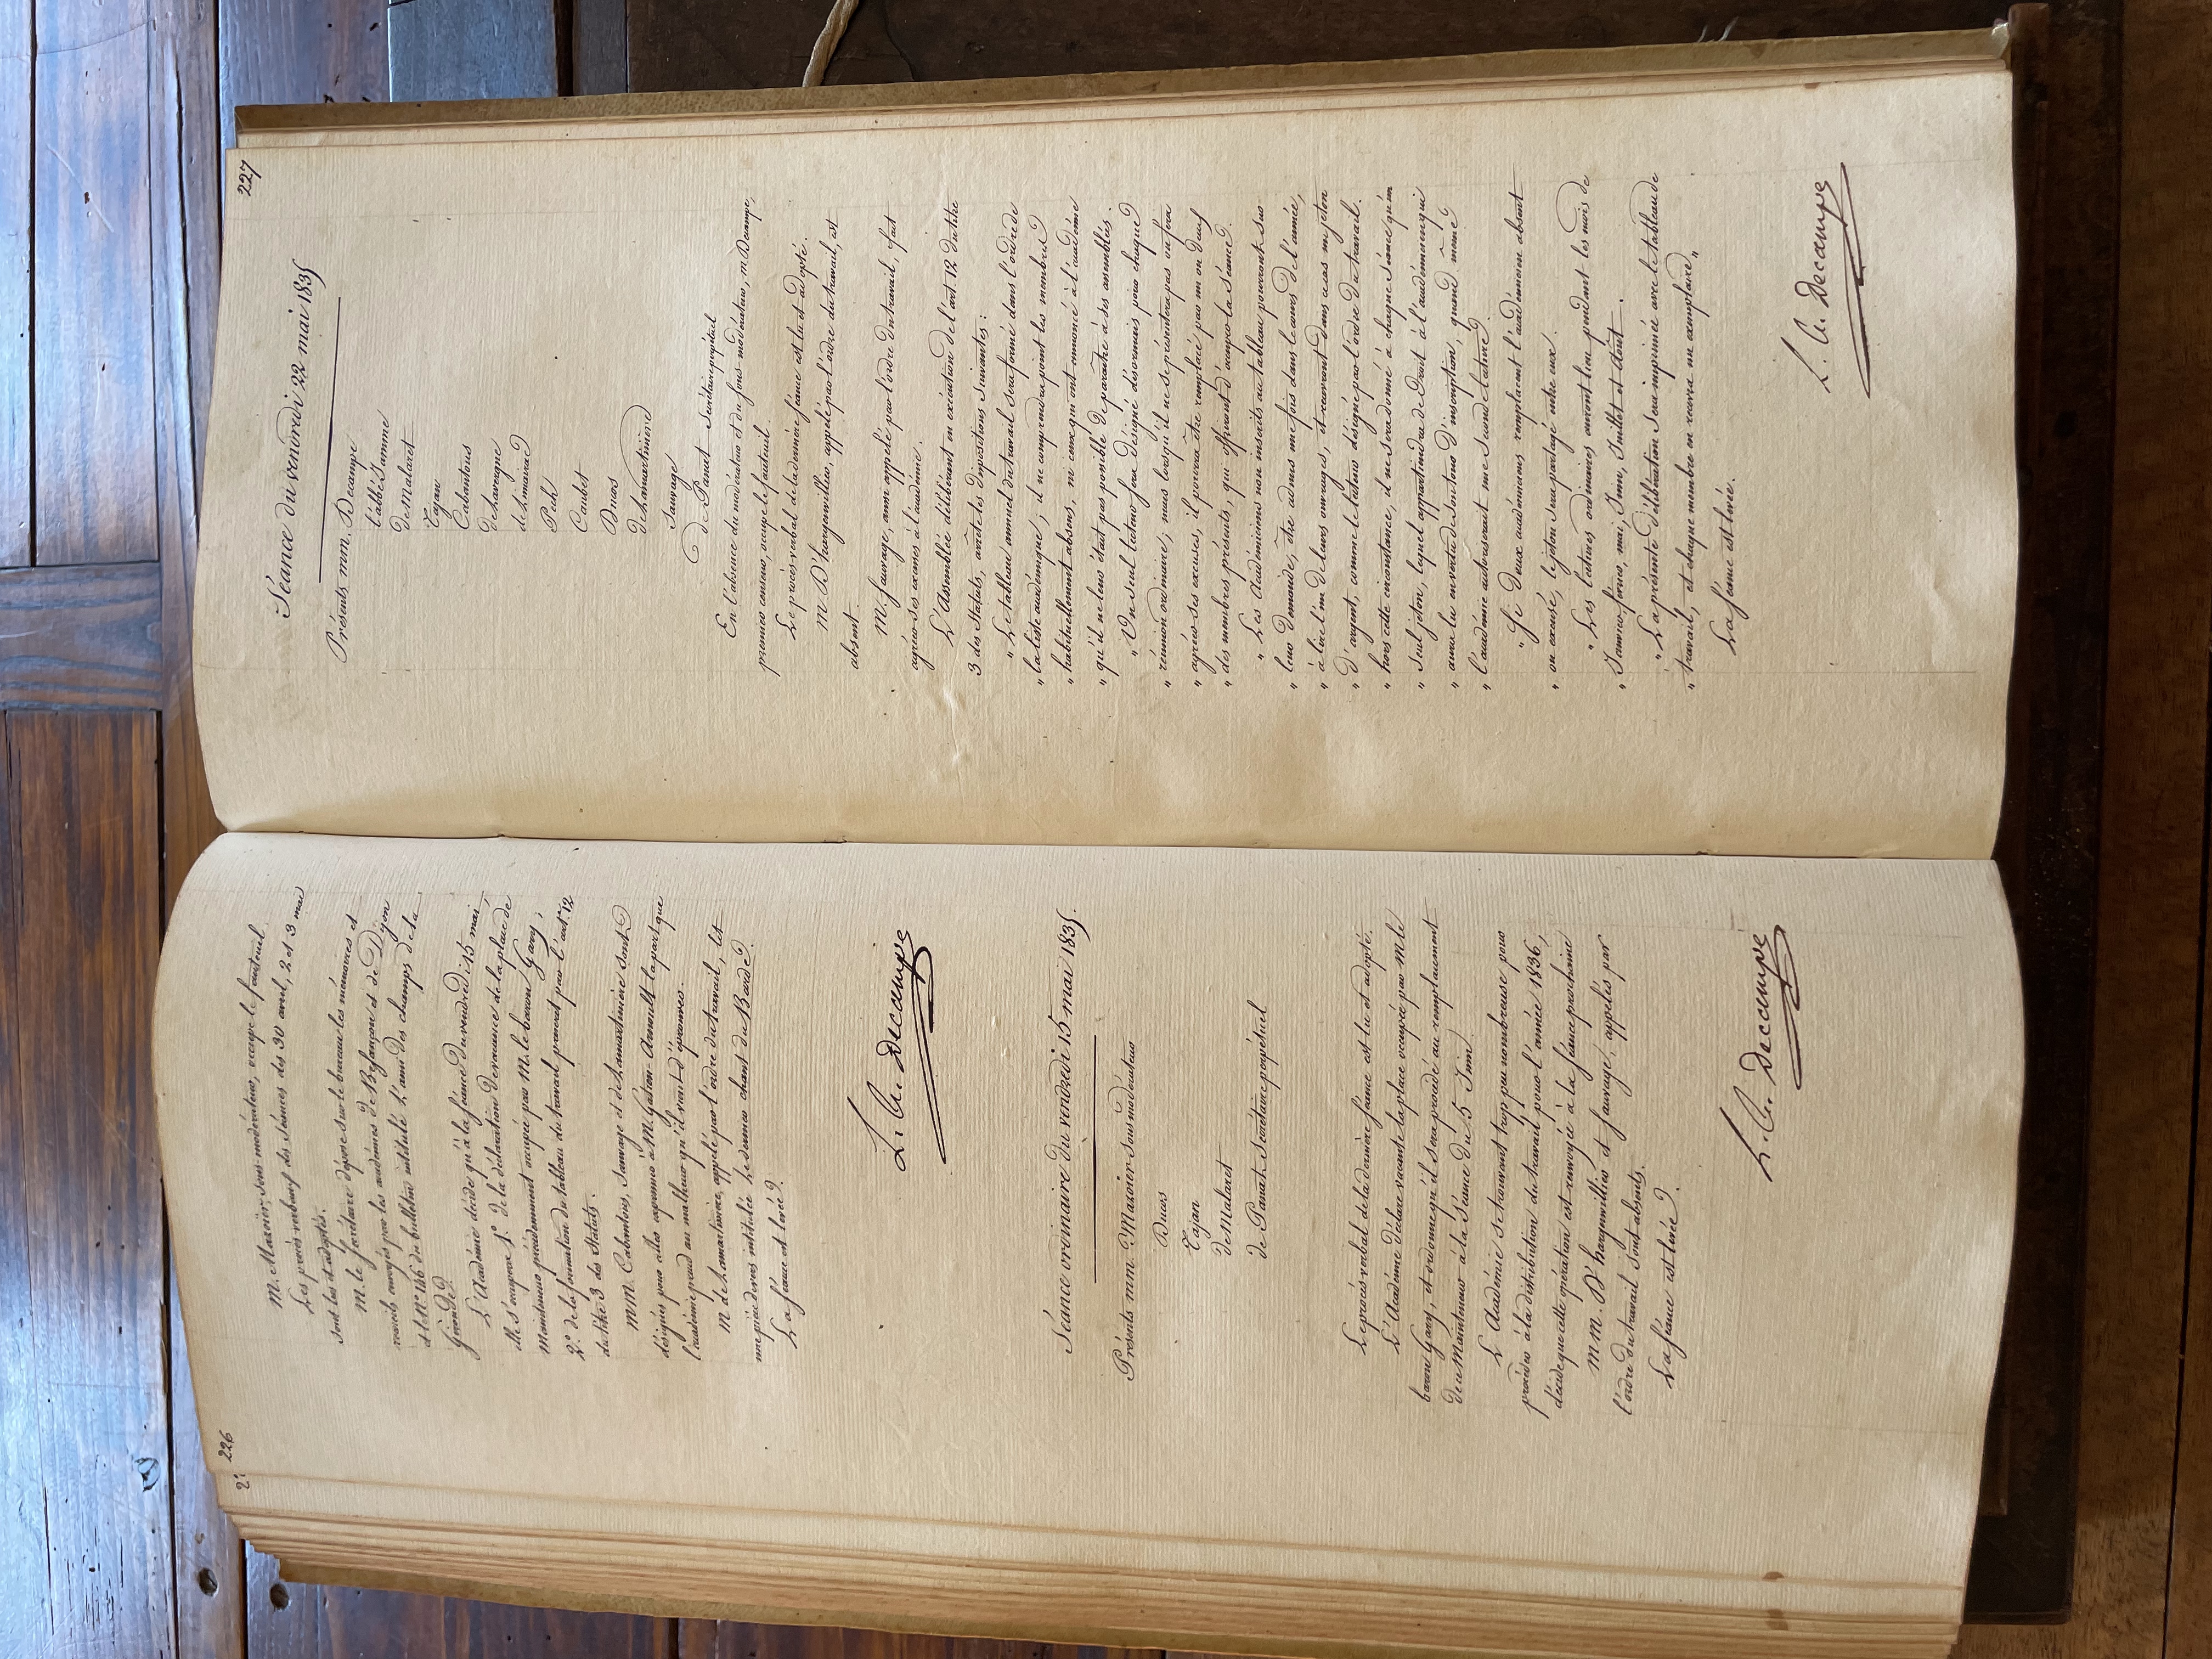 226
M. Mazoier, sous-modérateur, occupe le fauteuil.
Les procès-verbaux des séances des 30 avril, 2 et 3 mai
sont lus et adoptés.
M. le secrétaire dépose sur le bureau les mémoires et
recueils envoyés par les académies de Besançon et de Dijon
et le N.° 146 du bulletin intitulé L'ami des champs de la
Gironde.
L'Académie décide qu'à la séance du vendredi 15 mai,
elle s'occupera 1.° de la déclaration de vacance de la place de
Mainteneur précédemment occupée par M. le baron Gary;
2.° de la formation du tableau du travail prescrit par l'art. 12
du titre 3 des Statuts.
MM. Cabantous, Sauvage et de Lamartinière sont
désignés pour aller exprimer à M. Gatien-Arnoult la part que
l'académie prend au malheur qu'il vient d'éprouver.
M. de Lamartinière, appelé par l'ordre du travail, lit
une pièce de vers intitulée Le dernier chant du Barde.
La séance est levée.
L. A. Decampe
Séance ordinaire du vendredi 15 mai 1835.
Présents MM. Mazoier Sous modérateur
Ducos
Tajan
de Malaret
de Panat Secrétaire perpétuel
Le procès verbal de la dernière séance est lu et adopté.
L'Académie déclare vacante la place occupée par M. le
baron Gary, et ordonne qu'il sera procédé au remplacement
de ce Mainteneur à la Séance du 5 Juin.
L'Académie se trouvant trop peu nombreuse pour
procéder à la distribution du travail pour l'année 1836,
décide que cette opération est renvoyée à la séance prochaine
MM. D'hargenvillier et Sauvage, appelés par
l'ordre du travail sont absents.
La séance est levée.
L. A. Decampe
227
Séance du vendredi 22 mai 1835
Présents MM. Decampe
l'abbé Jamme
de Malaret
Tajan
Cabantous
de Lavergne
de Limairac
Pech
Caubet
Ducos
de Lamartinière
Sauvage
de Panat Secrétaire perpétuel
En l'absence du modérateur et du sous-modérateur, M. Decampe,
premier censeur, occupe le fauteuil.
Le procès-verbal de la dernière séance est lu et adopté.
M. D'hargenvillier, appelé par l'ordre du travail, est
absent.
M. Sauvage, aussi appelé par l'ordre du travail, fait
agréer ses excuses à l'académie.
L'Assemblée délibérant en exécution de l'art. 12 du titre
3 des Statuts, arrête les dispositions suivantes:
„ Le tableau annuel du travail sera formé dans l'ordre de
„ la liste académique; il ne comprendra point les membres
„ habituellement absens, ni ceux qui ont annoncé à l'académie
„ qu'il ne leur était pas possible de paraître à ses assemblées.
„ Un seul lecteur sera désigné désormais pour chaque
„ réunion ordinaire; mais lorsqu'il ne se présentera pas ou fera
„ agréer ses excuses, il pourra être remplacé par un ou deux
„ des membres présents, qui offriront d'occuper la séance.
„ Les Académiciens non inscrits au tableau pourront sur
„ leur demande, être admis une fois dans le cours de l'année,
„ à lire l'un de leurs ouvrages, et recevront dans ce cas un jeton
„ d'argent, comme le lecteur désigné par l'ordre du travail.
„ hors cette circonstance, il ne sera donné à chaque séance qu'un
„ seul jeton, lequel appartiendra de droit à l'académicien qui
„ aura lu en vertu de son tour d'inscription, quand même
„ l'académie autoriserait une seconde lecture.
„ Si deux académiciens remplacent l'académicien absent
„ ou excusé, le jeton sera partagé entre eux.
„ Les lectures ordinaires auront lieu pendant les mois de
„ Janvier, février, mai, Juin, Juillet et Août.
„ La présente délibération sera imprimée avec le tableau de
„ travail, et chaque membre en recevra un exemplaire„
La séance est levée.
L. A. Decampe